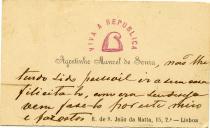 VIVA A REPUBLICA
Agostinho Manoel de Souza, não lhe
tendo sido possivel ir a sua casa
felicital-o, com era
vem fazel-o por este meio
e
R. de S. João da Matta, 15, 2.º — Lisboa